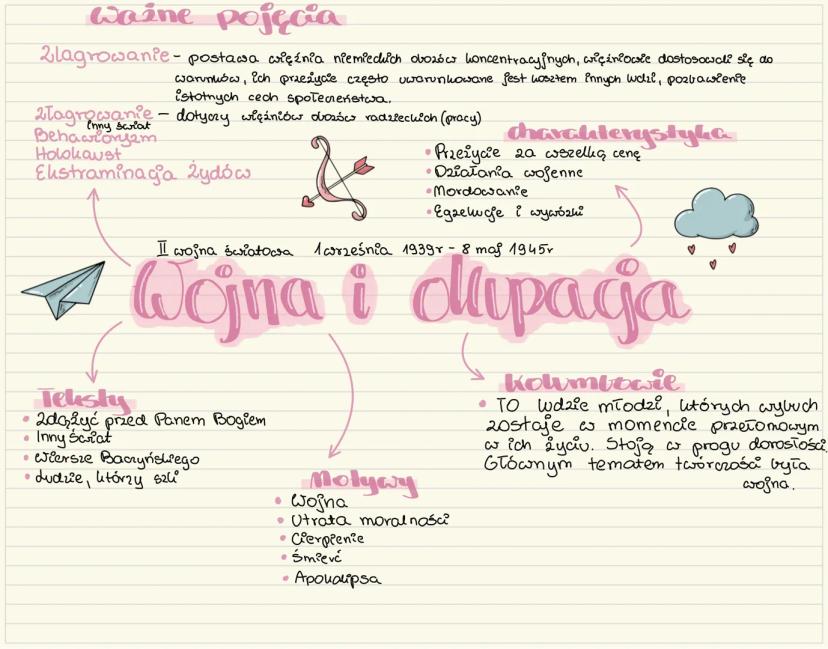 ważne pojęcia
Zlagrowanie - postawa więźnia niemieckich obozów koncentracyjnych, więźniowie dostosowali się do
warunków, ich przeżycie często uwarunkowane jest kosztem innych ludzi, pozbawienie
istotnych cech społeczeństwa.
Złagrowanie - dotyczy więźniów obozów radzieckich (pracy)
Inny świat
Behawioryzm
Holokaust
Ekstraminacja Żydów
charakterystyka
Przeżycie za wszelką cenę
Działania wojenne
Mordowanie
Egzekucje i wywózki
II wojna światowa 1 września 1939r - 8 maj 1945r
Wojna i okupacja
Teksty
Zdążyć przed Panem Bogiem
Inny świat
Wiersze Baczyńskiego
Ludzie, którzy szli
Motywy
Wojna
Utrata moralności
Cierpienie
Śmierć
Apokalipsa
Kolumbowie
TO ludzie młodzi, których wybuch
zostaje w momencie przełomowym
w ich życiu. Stoją w progu dorosłości.
Głównym tematem twórczości była
wojna.